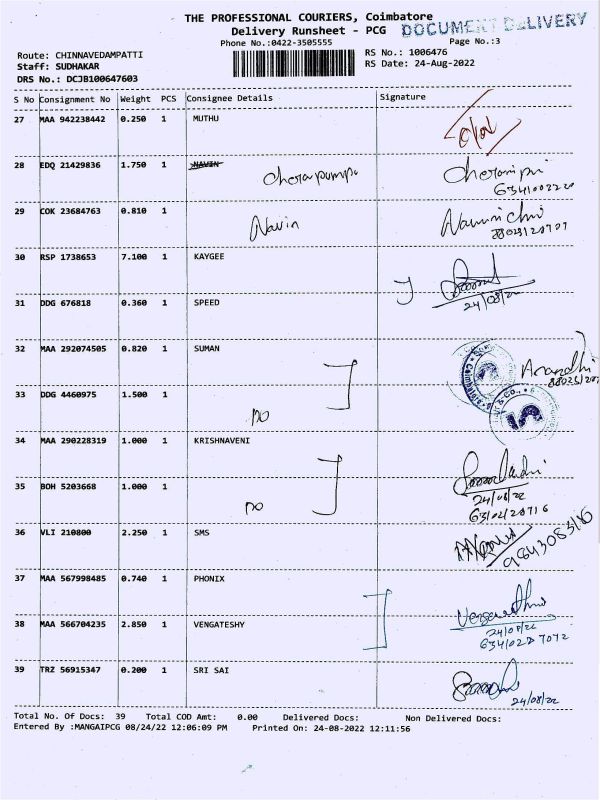 THE PROFESSIONAL COURIERS, Coimbatore
DOCUMENT DELIVERY
Delivery Runsheet - PCG
Phone No.:0422-3505555
Page No.:3
Route: CHINNAVEDAMPATTI
RS No.: 1006476
Staff: SUDHAKAR
RS Date: 24-Aug-2022
DRS No.: DCJB100647603
S No Consignment No Weight PCS Consignee Details Signature
27 MAA 942238442 0.250 1 MUTHU
28 EDQ 21429836 1.750 1 NAVIN Cherapumpu
29 COK 23684763 0.810 1 Navin
30 RSP 1738653 7.100 1 KAYGEE
24/08/22
31 DDG 676818 0.360 1 SPEED
32 MAA 292074505 0.820 1 SUMAN Anandhi
33 DDG 4460975 1.500 1 DO
34 MAA 290228319 1.000 1 KRISHNAVENI
35 BOH 5203668 1.000 1 DO 24/08/22
36 VLI 210800 2.250 1 SMS
37 MAA 567998485 0.740 1 PHONIX
38 MAA 566704235 2.850 1 VENGATESHY 24/08/22
39 TRZ 56915347 0.200 1 SRI SAI
24/08/22
Total No. Of Docs: 39 Total COD Amt: 0.00 Delivered Docs: Non Delivered Docs:
Entered By :MANGAIPCG 08/24/22 12:06:09 PM Printed On: 24-08-2022 12:11:56